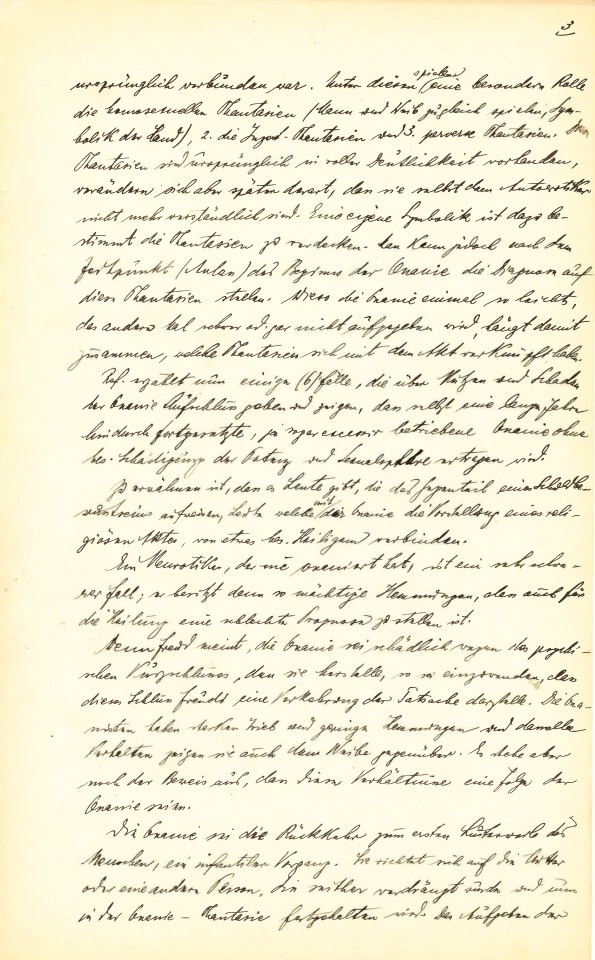 3
ursprünglich verbunden war. Unter diesen spielen eine besondere Rolle
die homosexuellen Phantasien (Mann und Weib zugleich spielen, Sym-
bolik der Hand), 2. die Inzest-Phantasien und 3. perverse Phantasien.
Phantasien sind ursprünglich in voller Deutlichkeit vorhanden,
verändern sich aber später derart, dass sie selbst dem Autoerotiker
nicht mehr verständlich sind. Eine eigene Symbolik ist dazu be-
stimmt die Phantasien zu verdecken. Man kann jedoch nach dem
(Anlass) des Beginnes der Onanie die Diagnose auf
diese Phantasien stellen. Wieso die Onanie einmal so leicht,
das andere Mal schwer od. gar nicht aufgegeben wird, hängt damit
zusammen, welche Phantasien sich mit dem Akt verknüpft haben.
Ref. erzählt nun einige (6) Fälle, die über Nutzen und Schaden
der Onanie Aufschluss geben und zeigen, dass selbst eine lange Jahre
hindurch fortgesetzte, ja sogar excessiv betriebene Onanie ohne
bes. Schädigung der Potenz und Sexualsphäre ertragen wird.
Zu erwähnen ist, dass es Leute gibt, die das Gegenteil eines Schuldbe-
wusstseins aufweisen, Leute welche mit der Onanie die Vorstellung eines reli-
giösen Aktes, von etwas bes. Heiligem verbinden.
Ein Neurotiker, der nie onaniert hat, ist ein sehr schwe-
rer Fall; er besitzt dann so mächtige Hemmungen, dass auch für
die Heilung eine schlechte Prognose zu stellen ist.
Wenn Freud meint, die Onanie sei schädlich wegen des psychi-
schen Kurzschlusses, den sie herstelle, so sei einzuwenden, dass
dieser Schluss Freuds eine Verkehrung der Tatsache darstelle. Die Ona-
nisten haben starken Trieb und geringe Hemmungen und dasselbe
Verhalten zeigen sie auch dem Weibe gegenüber. Es stehe aber
noch der Beweis aus, dass diese Verhältnisse eine Folge der
Onanie seien.
Die Onanie sei die Rückkehr zum ersten Lusterwerb des
Menschen, ein infantiler Vorgang. Sie richtet sich auf die
oder eine andere Person, die seither verdrängt wurde und nun
in der Onanie-Phantasie festgehalten wird. Das Aufgeben der